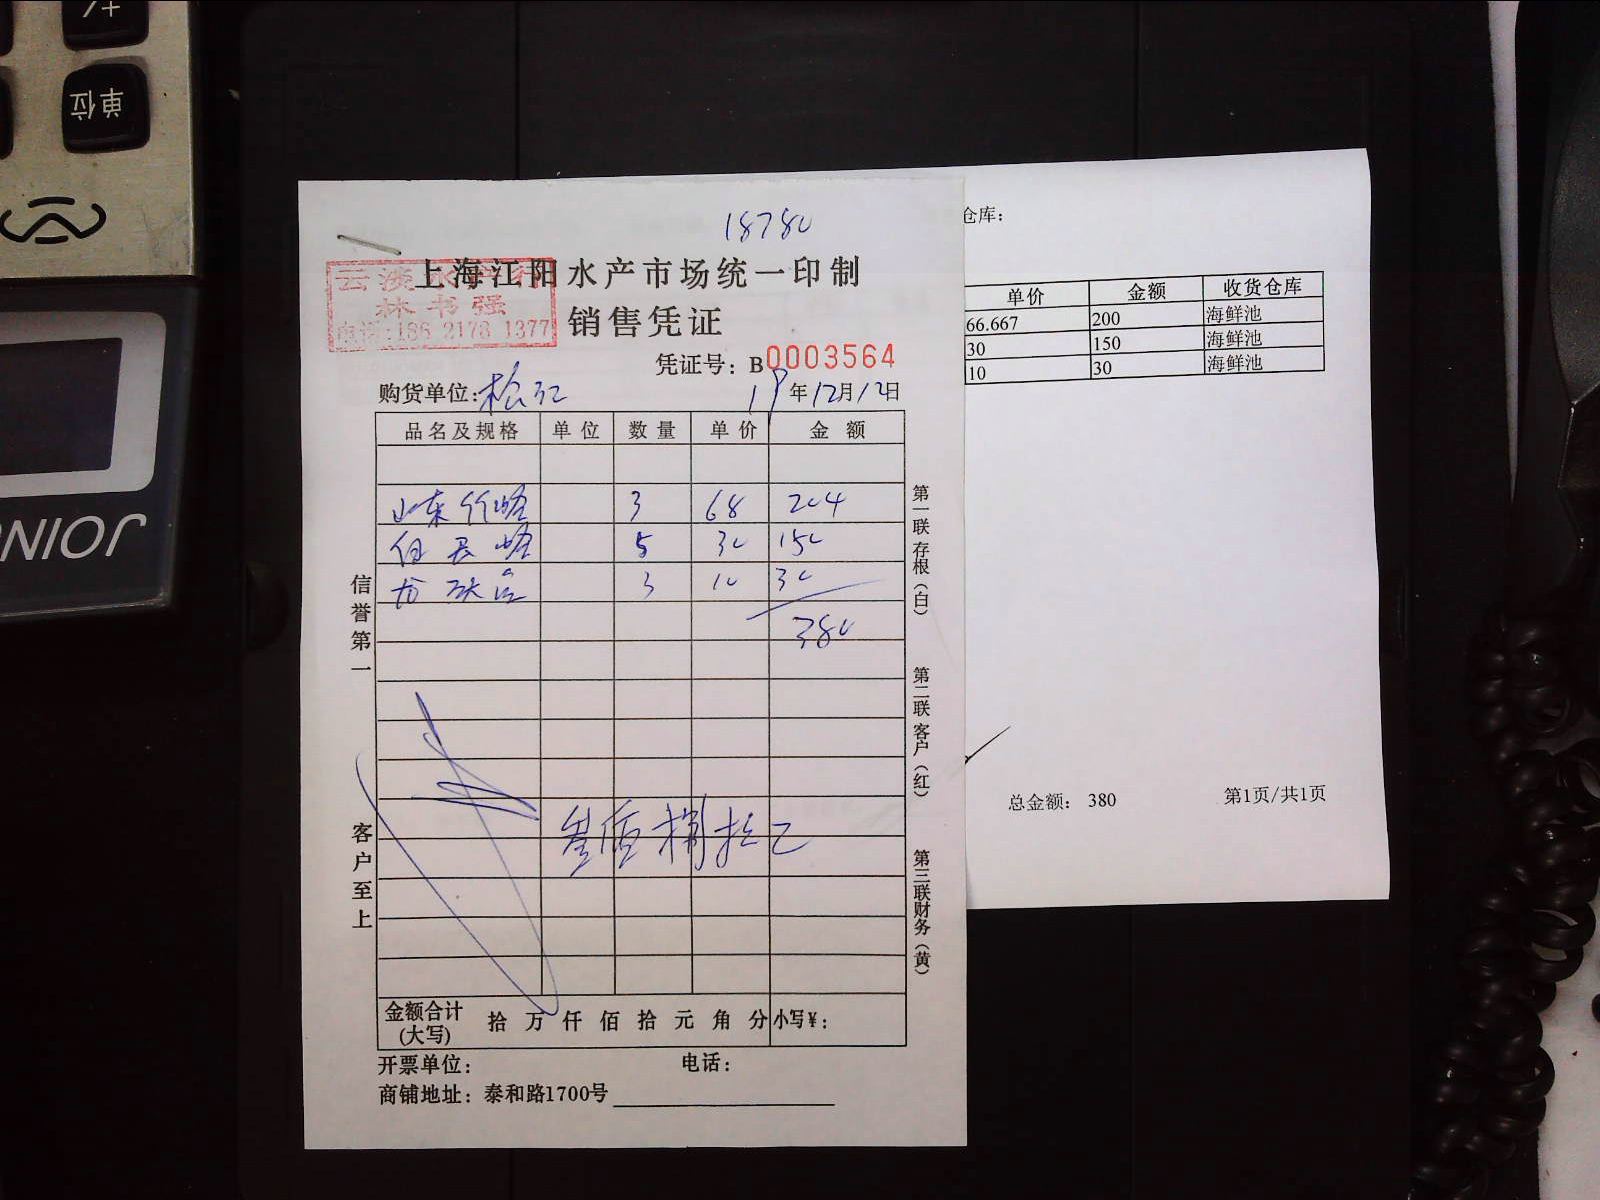 单位
JOINUS
18780
上海江阳水产市场统一印制
云淡水产行
林书强
电话:186 2173 1377
销售凭证
凭证号：B0003564
购货单位：松江 19年12月12日
品名及规格 单位 数量 单价 金额
山东竹蛏 3 68 204
5 30 150
3 10 30
380
叁佰捌拾
信誉第一
客户至上
第一联存根（白）
第二联客户（红）
第三联财务（黄）
金额合计(大写) 拾 万 仟 佰 拾 元 角 分 小写¥：
开票单位： 电话：
商铺地址：泰和路1700号
仓库：
单价 金额 收货仓库
66.667 200 海鲜池
30 150 海鲜池
10 30 海鲜池
总金额： 380 第1页/共1页